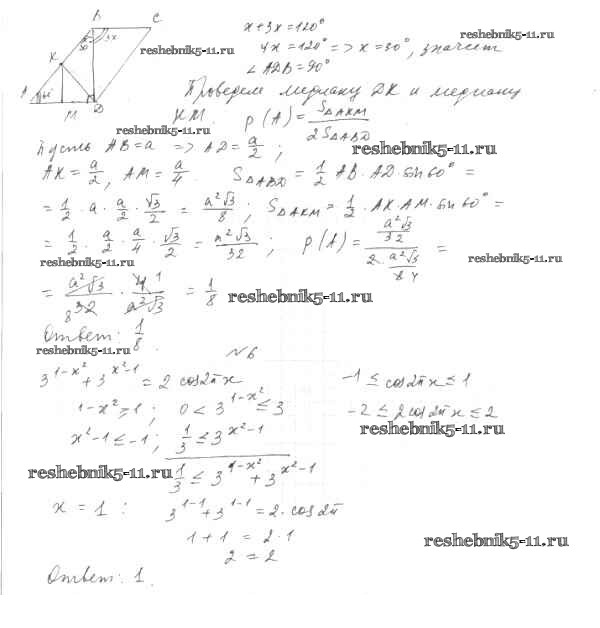 B C
x + 3x = 120°
30° 3x
reshebnik5-11.ru
reshebnik5-11.ru
K
4x = 120° => x = 30°, значит
∠ADB = 90°
A M D
Проведем медиану DK и медиану
KM. P(A) = S△AKM / 2S△ABD
reshebnik5-11.ru
Пусть AB = a => AD = a/2 ;
reshebnik5-11.ru
AK = a/2, AM = a/4. S△ABD = 1/2 AB · AD · sin 60° =
= 1/2 · a · a/2 · √3/2 = a²√3/8 ; S△AKM = 1/2 · AK · AM · sin 60° =
= 1/2 · a/2 · a/4 · √3/2 = a²√3/32 ; P(A) = (a²√3/32) / (2 · a²√3/8) =
reshebnik5-11.ru
reshebnik5-11.ru
= a²√3/32 · 4/a²√3 = 1/8
reshebnik5-11.ru
Ответ: 1/8.
reshebnik5-11.ru
№6
3^(1-x²) + 3^(x²-1) = 2 cos2πx
-1 ≤ cos2πx ≤ 1
1-x² ≥ 1 ; 0 < 3^(1-x²) ≤ 3
-2 ≤ 2cos2πx ≤ 2
reshebnik5-11.ru
x²-1 ≤ -1 ; 1/3 ≤ 3^(x²-1)
reshebnik5-11.ru
1/3 ≤ 3^(1-x²) + 3^(x²-1)
x = 1 : 3^(1-1) + 3^(1-1) = 2 · cos2π
1 + 1 = 2 · 1
reshebnik5-11.ru
2 = 2
Ответ: 1.